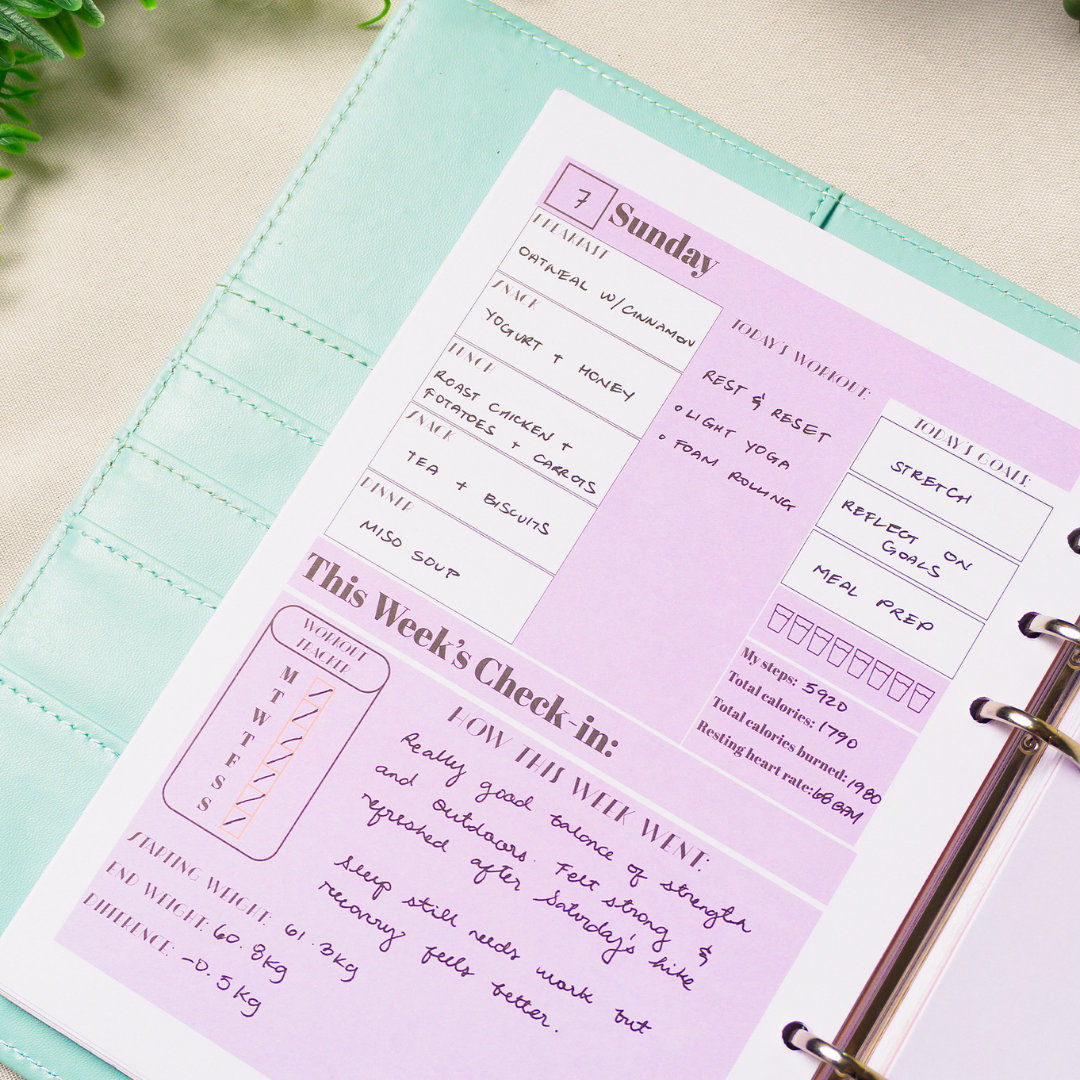 7
Sunday
BREAKFAST
OATMEAL W/CINNAMON
SNACK
YOGURT + HONEY
LUNCH
ROAST CHICKEN +
POTATOES + CARROTS
SNACK
TEA + BISCUITS
DINNER
MISO SOUP
TODAY'S WORKOUT:
REST & RESET
• LIGHT YOGA
• FOAM ROLLING
TODAY'S GOALS:
STRETCH
REFLECT ON
GOALS
MEAL PREP
My steps: 5920
Total calories: 1790
Total calories burned: 1980
Resting heart rate: 68 BPM
This Week's Check-in:
WORKOUT
TRACKER
M
T
W
T
F
S
S
HOW THIS WEEK WENT:
Really good balance of strength
and outdoors. Felt strong &
refreshed after Saturday's hike
Sleep still needs work but
recovery feels better.
STARTING WEIGHT: 61.3kg
END WEIGHT: 60.8kg
DIFFERENCE: -0.5kg